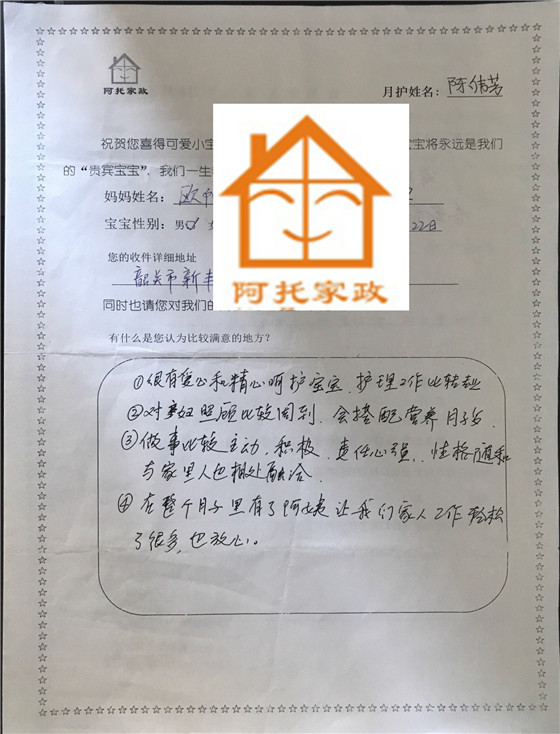 阿托家政
月护姓名：陈伟芳
祝贺您喜得可爱小宝 宝将永远是我们
的“贵宾宝宝”，我们一生
妈妈姓名：欧
宝宝性别：男 22日
阿托家政
您的收件详细地址
韶关市新丰
同时也请您对我们的
有什么是您认为比较满意的地方？
①很有爱心和精心呵护宝宝，护理工作比较专业
②对产妇照顾比较周到，会搭配营养月子餐．
③做事比较主动，积极，责任心强，性格随和
与家里人也相处融洽．
④在整个月子里有了阿姨让我们家人工作轻松
了很多，也放心。